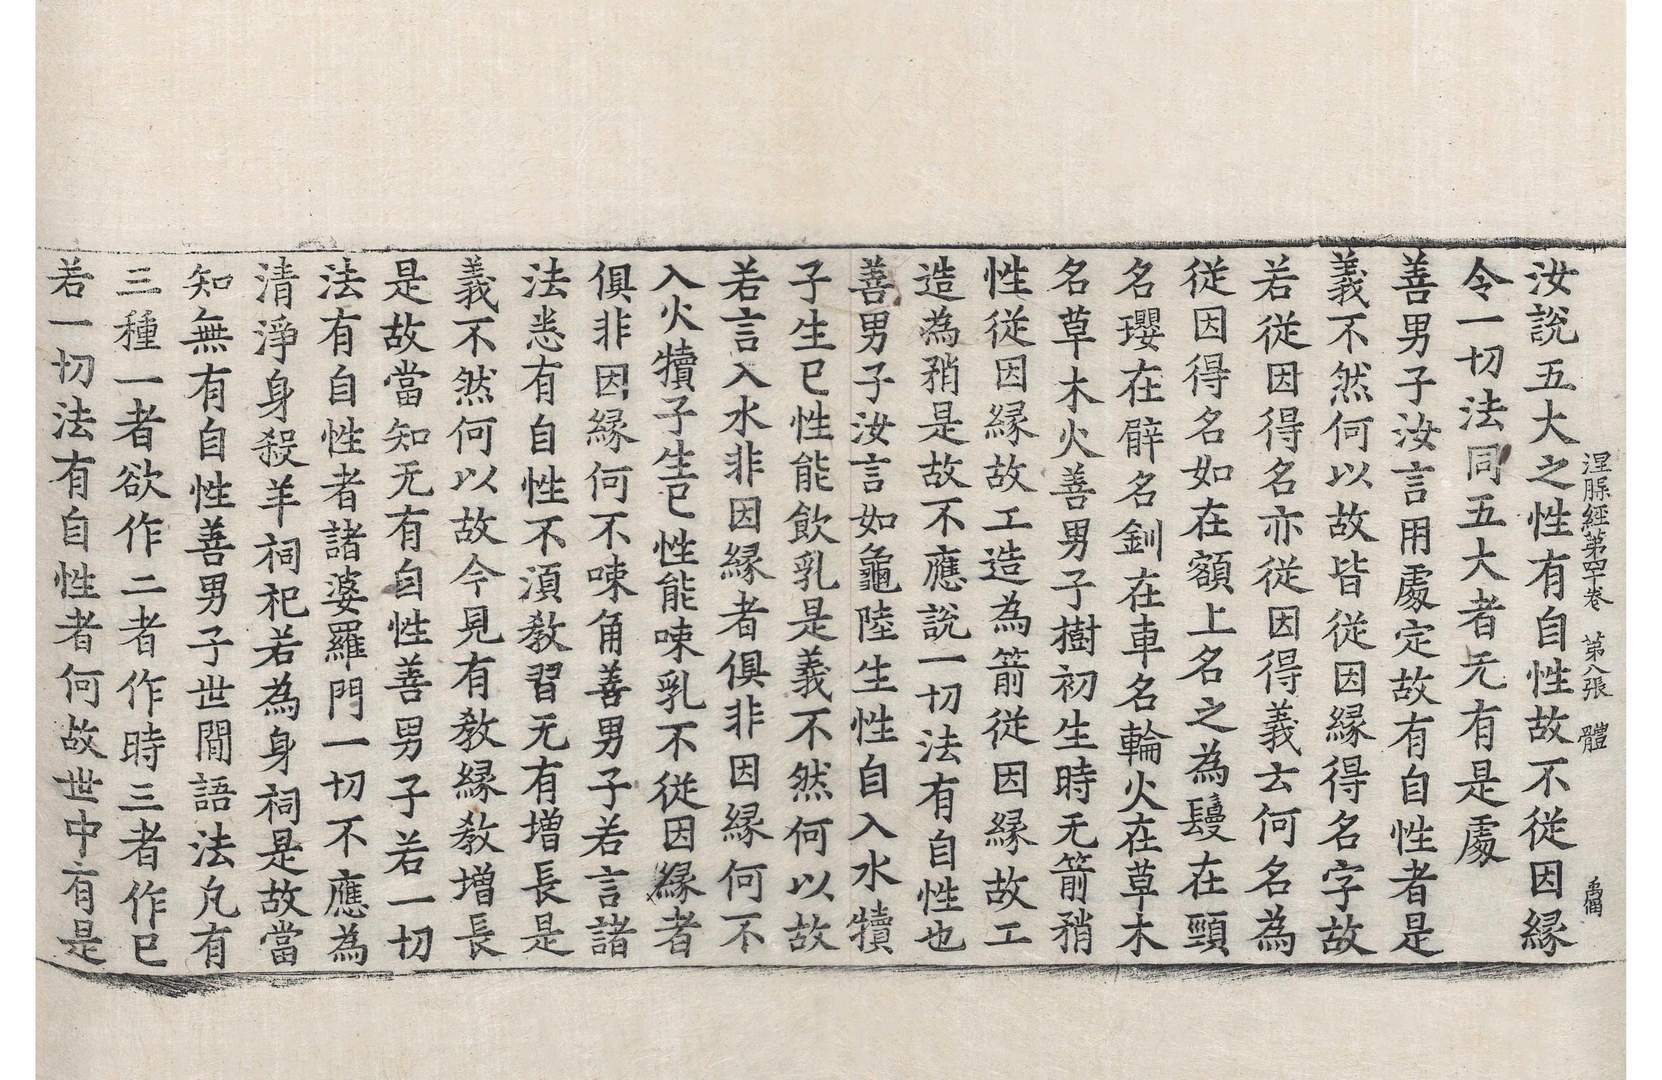 涅槃經第四十卷 第八張 體
汝說五大之性有自性故不從因緣
令一切法同五大者无有是處
善男子汝言用處定故有自性者是
義不然何以故皆從因緣得名字故
若從因得名亦從因得義云何名為
從因得名如在額上名之為鬘在頸
名瓔在臂名釧在車名輪火在草木
名草木火善男子樹初生時无箭矟
性從因緣故工造為箭從因緣故工
造為矟是故不應說一切法有自性也
善男子汝言如龜陸生性自入水犢
子生已性能飲乳是義不然何以故
若言入水非因緣者俱非因緣何不
入火犢子生已性能㖩乳不從因緣者
俱非因緣何不㖩角善男子若言諸
法悉有自性不湏教習无有增長是
義不然何以故今見有教緣教增長
是故當知无有自性善男子若一切
法有自性者諸婆羅門一切不應為
清淨身殺羊祠祀若為身祠是故當
知無有自性善男子世間語法凡有
三種一者欲作二者作時三者作已
若一切法有自性者何故世中有是